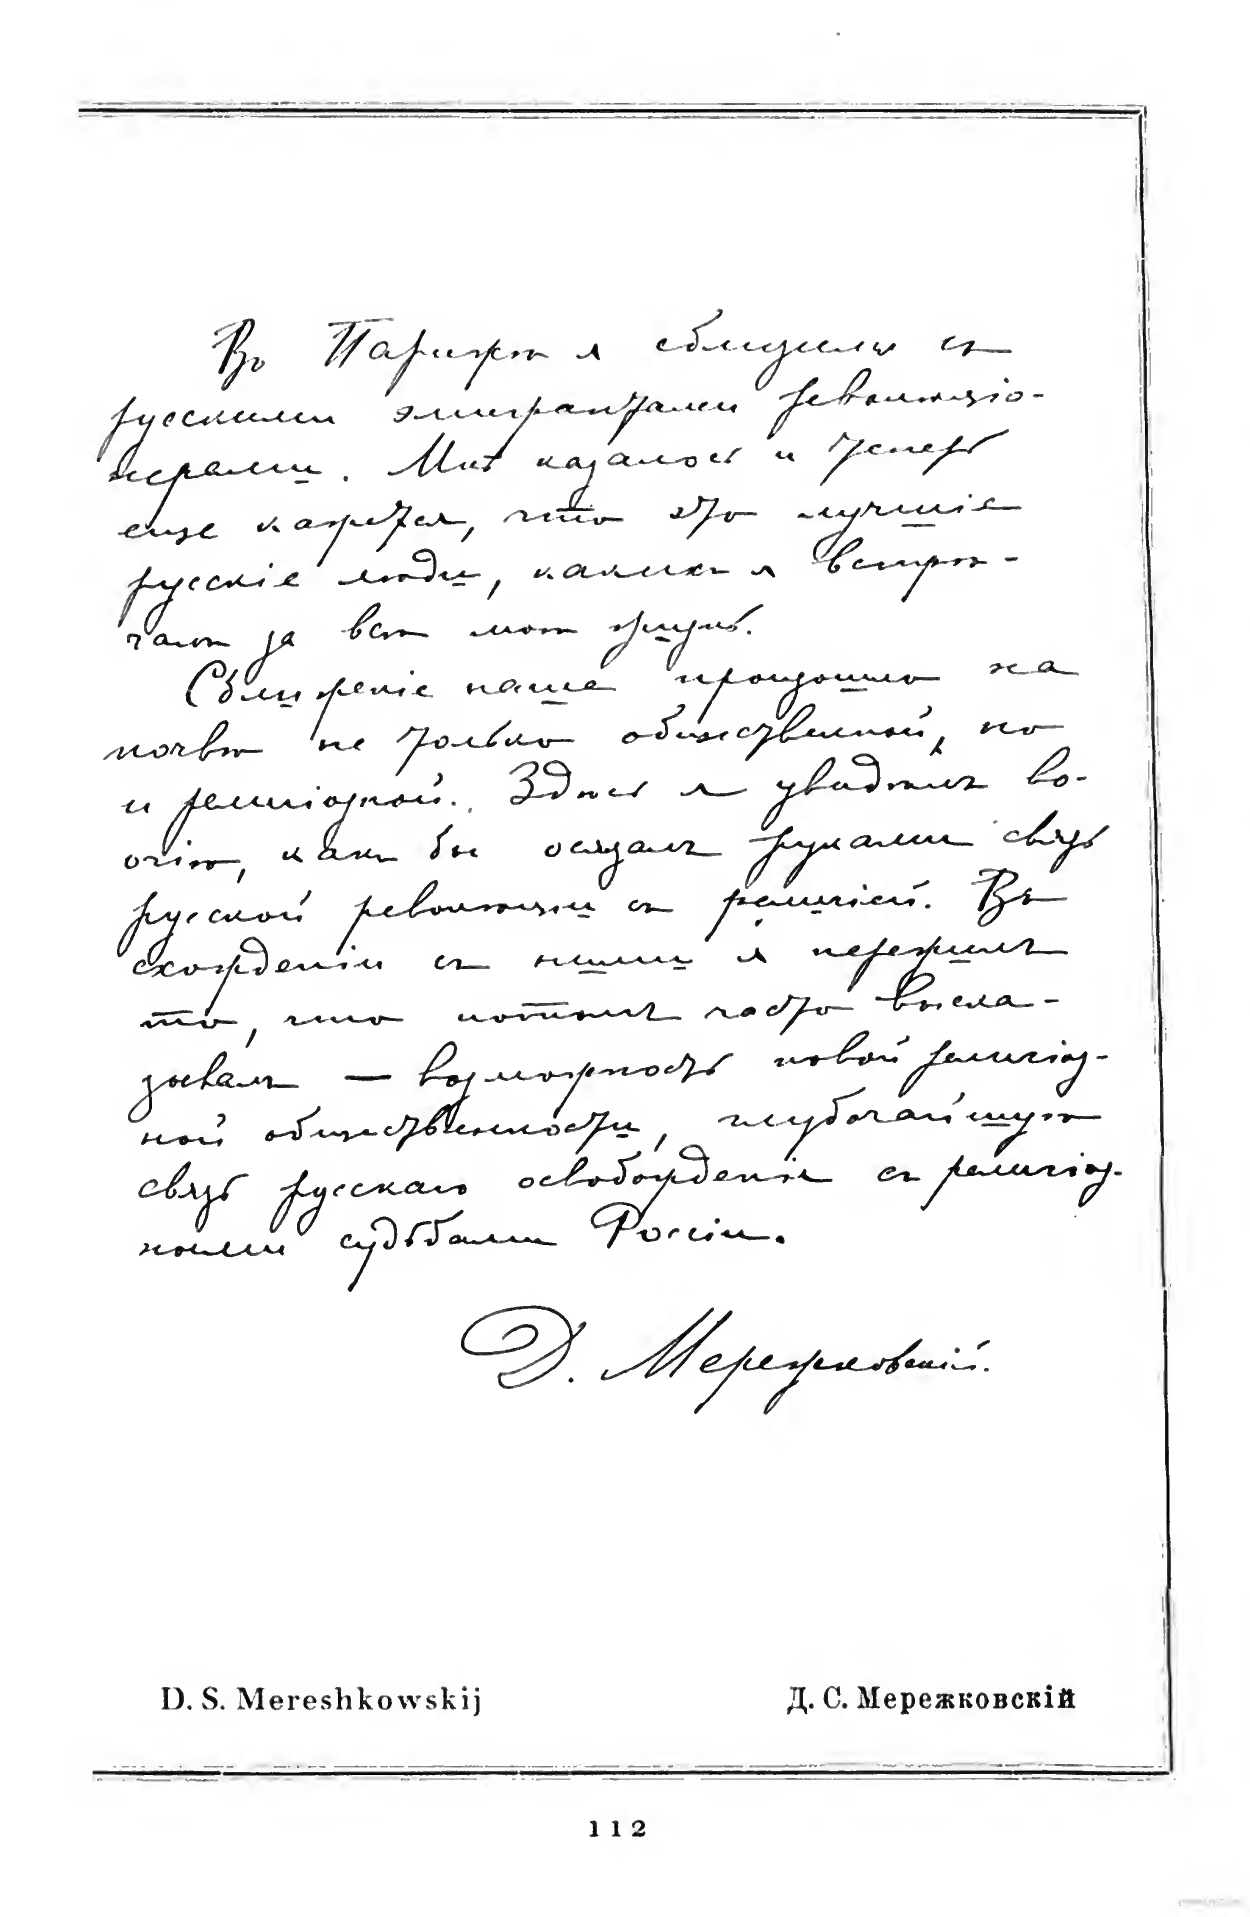 Въ Парижѣ я сблизился съ
русскими эмигрантами революціо-
нерами. Мнѣ казалось и теперь
еще кажется, что это лучшіе
русскіе люди, какихъ я встрѣ-
чалъ за всю мою жизнь.
Сближеніе наше произошло на
почвѣ не только общественной, но
и религіозной. Здѣсь я увидѣлъ во-
очію, какъ бы осязалъ руками связь
русской революціи съ религіей. Въ
схожденіи съ ними я пережилъ
то, что потомъ часто выска-
зывалъ — возможность новой религіоз-
ной общественности, глубочайшую
связь русскаго освобожденія съ религіоз-
ными судьбами Россіи.
Д. Мережковскій.
D. S. Mereshkowskij Д. С. Мережковскій
112